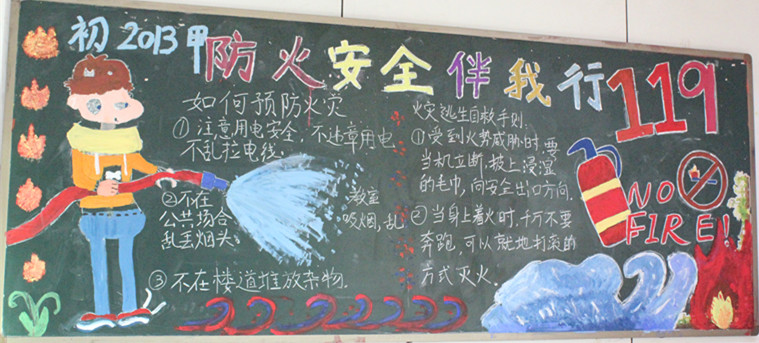 初2013甲
防火安全伴我行
119
如何预防火灾
①注意用电安全，不违章用电，
不乱拉电线.
②不在 教室
公共场合 吸烟，乱
乱丢烟头.
③不在楼道堆放杂物.
火灾逃生自救手则.
①受到火势威胁时，要
当机立断，披上浸湿
的毛巾，向安全出口方向.
②当身上着火时，千万不要
奔跑，可以就地打滚的
方式灭火.
NO
FIRE!